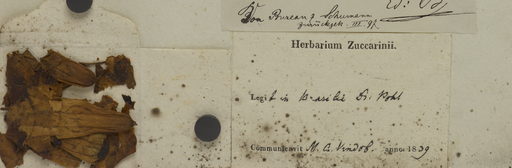 Von Bureau & Schumann
zurückgek. III. 97.
Herbarium Zuccarinii.
Legit in Brasilia Dr. Pohl
Communicavit M. C. Vindob. anno 1839